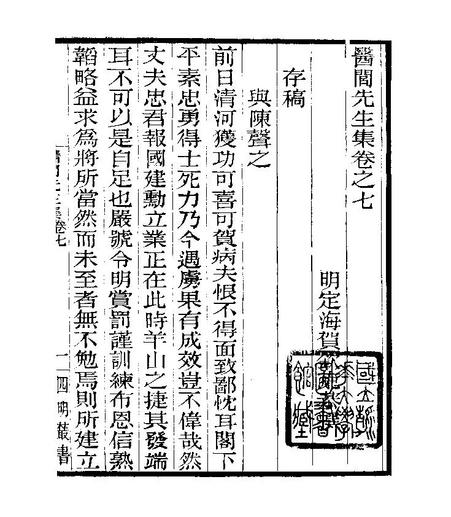 醫閭先生集卷之七
明定海賀
存稿
與陳聲之
前日清河獲功可喜可賀病夫恨不得面致鄙忱耳閣下
平素忠勇得士死力乃今遇虜果有成效豈不偉哉然
丈夫忠君報國建勳立業正在此時羊山之捷其發端
耳不可以是自足也嚴號令明賞罰謹訓練布恩信熟
韜略益求爲將所當然而未至者無不勉焉則所建立
集卷七
一
四明叢書